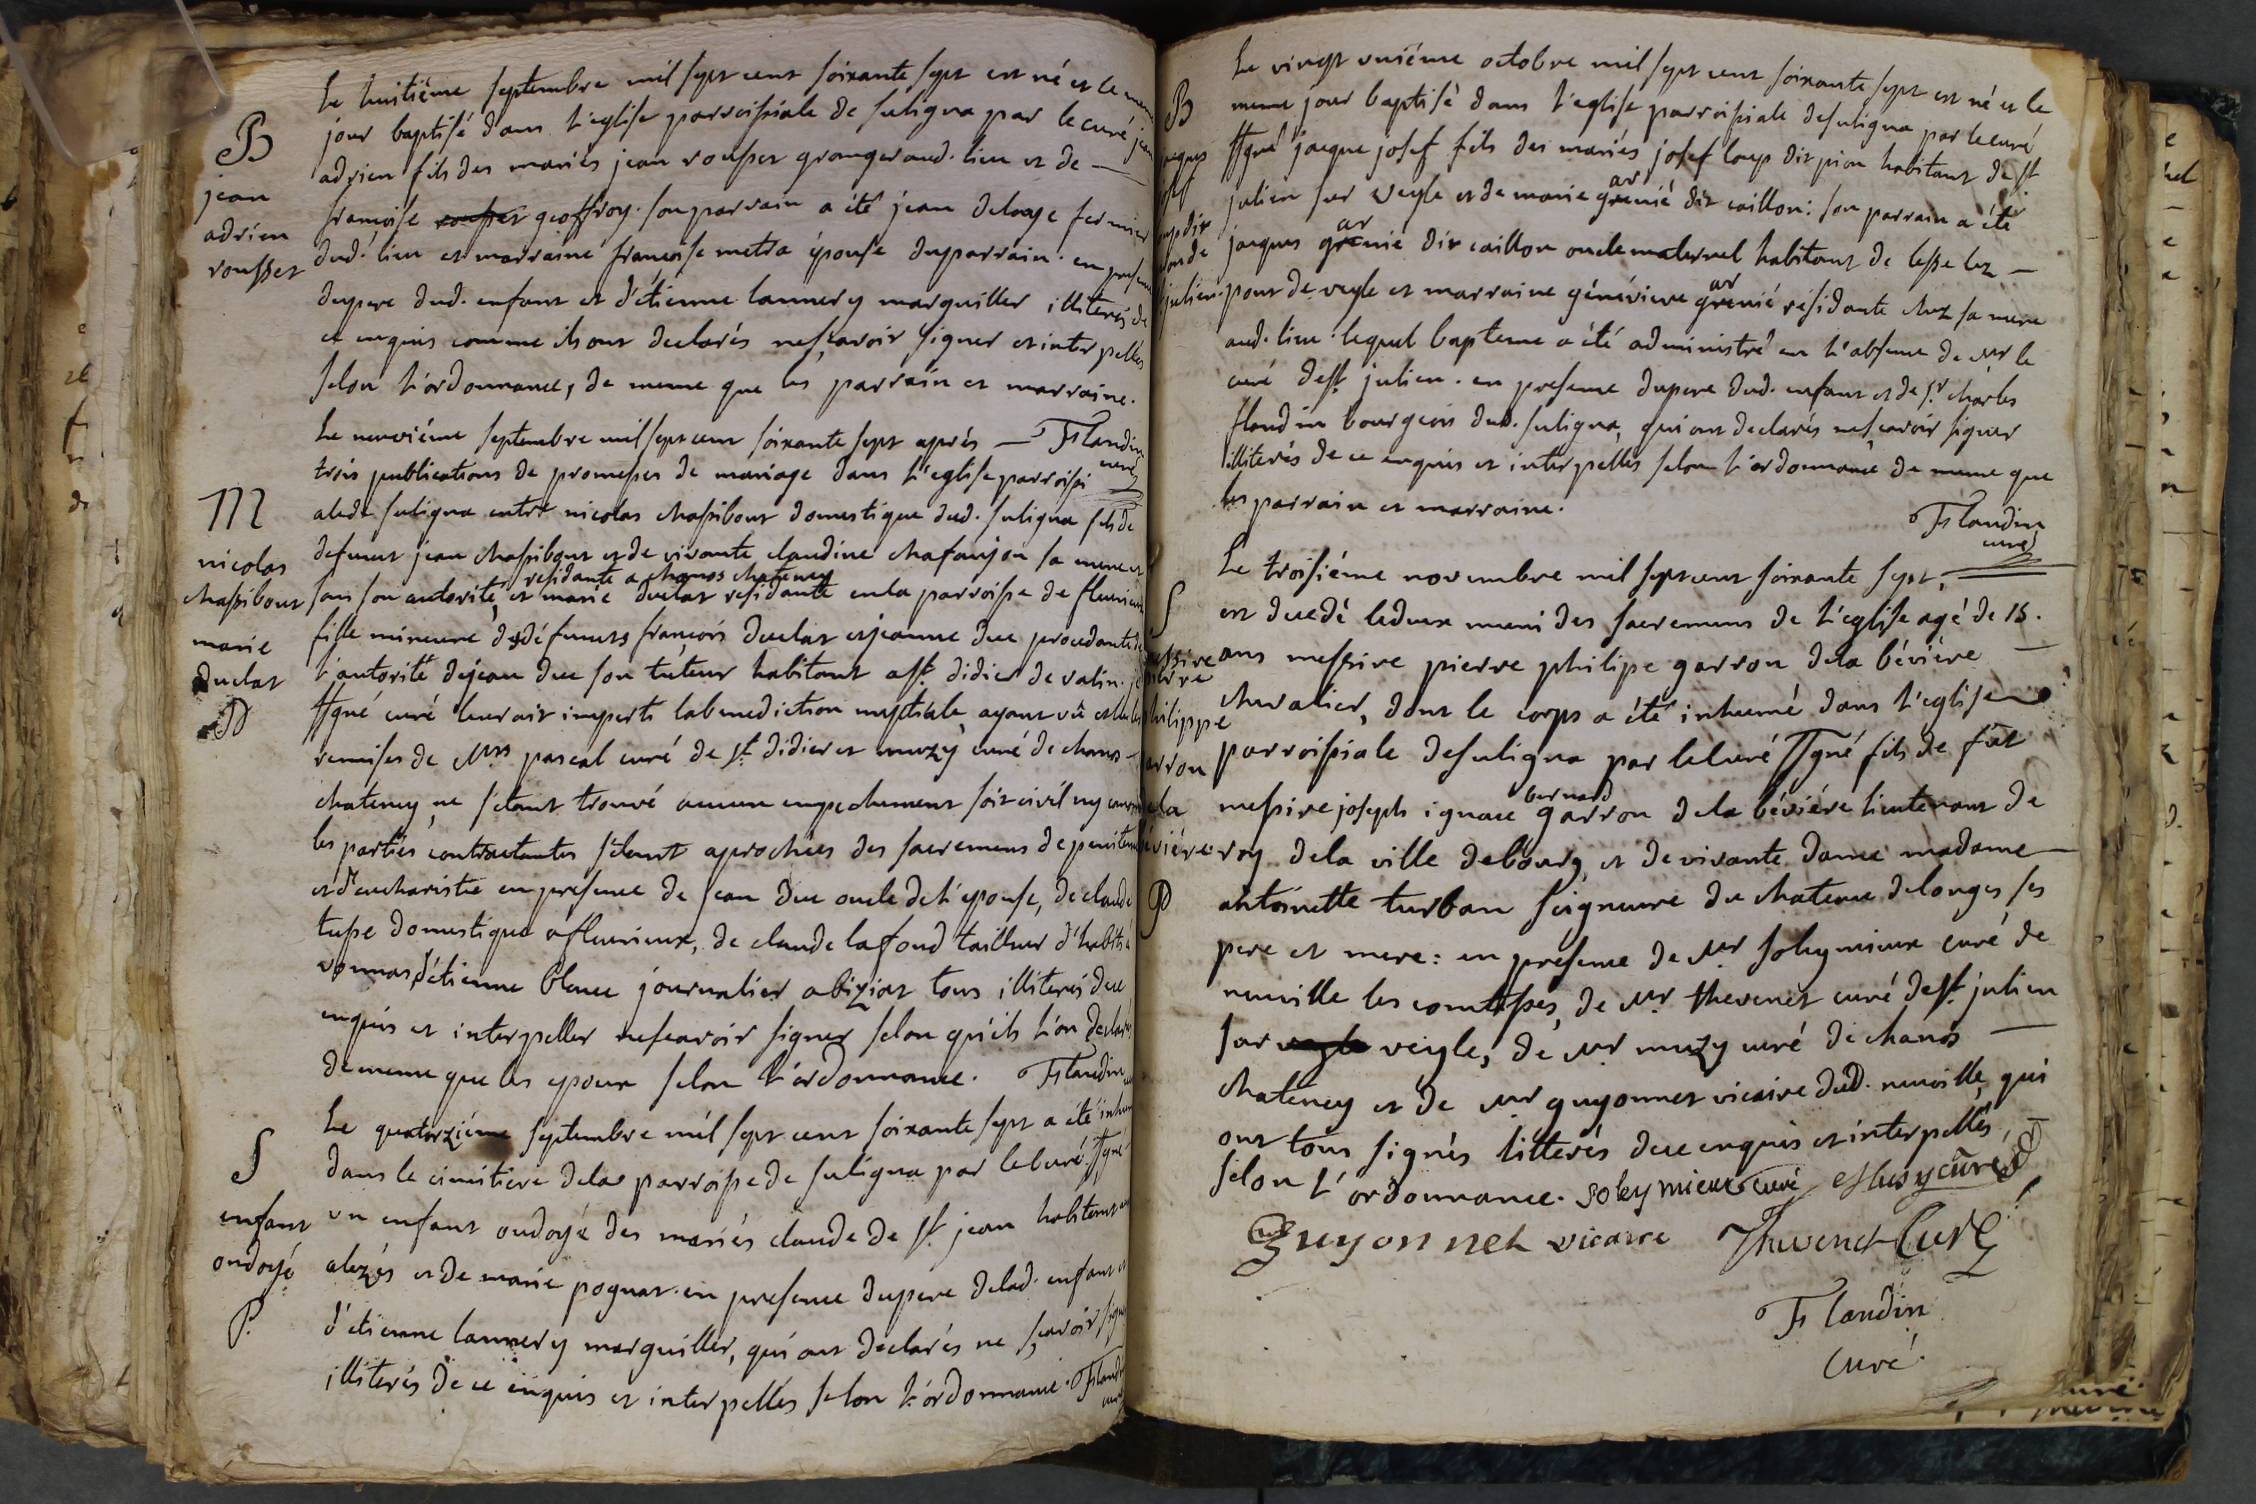 Le huitiéme septembre mil sept cent soixante sept est né et le mem
jour baptisé dans l'eglise parroissiale de suligna par le curé jean
B
adrien fils des mariés jean rousset granger aud. lieu et de —
jean
adrien
rousset
françoise rousset geoffroy. son parrain a été jean deloaze fermier
dud. lieu et marraine françoise metra épouse du parrain. en presence
du pere dud. enfant et d'étienne lannery marguiller illiterés de
ce enquis comme ils ont declarés ne sçavoir signer et interpellés
selon l'ordonnance, de meme que les parrain et marraine.
Le neuviéme septembre mil sept cent soixante sept après — Flandin
curé
trois publications de promesses de mariage dans l'eglise parroissi
M
nicolas
chassibout
marie
duclat
P
ale de suligna entre nicolas chassibout domestique dud. suligna fils de
defunct jean chassibout et de vivante claudine chafanjon sa mere et
residante a chanos chateney
sous son autorité, et marie duclat residante en la parroisse de fleurieux
fille mineure de défuncts françois duclat et jeanne duc procedante de
l'autorité de jean duc son tuteur habitant a st. didier de valin. je
ssgné curé leur ait imparti la benediction nuptiale ayant vû et lu les
remises de Mrs pascal curé de st. didier et muzy curé de chanos —
chateney, ne s'etant trouvé aucun empechement soit civil ny canon
les parties contractantes s'étant aprochées des sacremens de penitence
et d'eucharistie en presence de jean duc oncle de l'epouse, de claude
tusse domestique a fleurieux, de claude lafond tailleur d'habits à
vonnas, d'étienne blanc journalier a biziat tous illiterés de ce
enquis et interpeller ne scavoir signer selon qu'ils l'on declarés
de meme que les epoux selon l'ordonnance. Flandin
Le quatorziéme septembre mil sept cent soixante sept a été inhum
S
enfant
ondoyé
P.
dans le cimitiere de la parroisse de suligna par le curé ssgné
un enfant ondoyé des mariés claude de st. jean habitant
alezés et de marie pognat. en presence du pere delad. enfant et
d'étienne lannery marguiller, qui ont declarés ne sçavoir signer
illiterés de ce enquis et interpellés selon l'ordonnance. Flandin
curé
Le vingt uniéme octobre mil sept cent soixante sept est né et le
B
meme jour baptisé dans l'eglise parroissiale de suligna par le curé
ssgné jacque josef fils des mariés josef loup dit pion habitant de st.
ar
julien sur veyle et de marie grenié dit caillon: son parrain a été
ar
jacques grenié dit caillon oncle maternel habitant de lesse lez —
ar
julien. pont de veyle et marraine généviéve grenié résidante chez sa mere
aud. lieu. lequel bapteme a été administré en l'absence de Mr le
curé de st. julien. en presence du pere dud. enfant et de sr. charles
flandin bourgeois dud. suligna, qui ont declarés ne sçavoir signer
illiterés de ce enquis et interpellés selon l'ordonnance de meme que
les parrain et marraine.
Flandin
curé
Le troisiéme novembre mil sept cent soixante sept,
S
est decedé le deux muni des sacremens de l'eglise agé de 15.
ans messire pierre philipe garron de la béviére —
chevalier, dont le corps a été inhumé dans l'eglise
parroissiale de suligna par le curé ssgné fils de fût
bernard
messire joseph ignace garron de la béviére lieutenant de
roy de la ville de bourg, et de vivante dame madame —
P
antoinette turban seigneure du chateau de longes ses
pere et mere: en presence de Mr soleymieux curé de
neuville les comtesses, de Mr. thevenet curé de st. julien
sur veyle veyle, de Mr muzy curé de chanos —
chateney et de Mr guyonnet vicaire dud. neuville, qui
ont tous signés litterés de ce enquis et interpellés,
selon l'ordonnance. soleymieux curé Musy curé
Guyonnet vicaire Thevenet Curé
Flandin
Curé